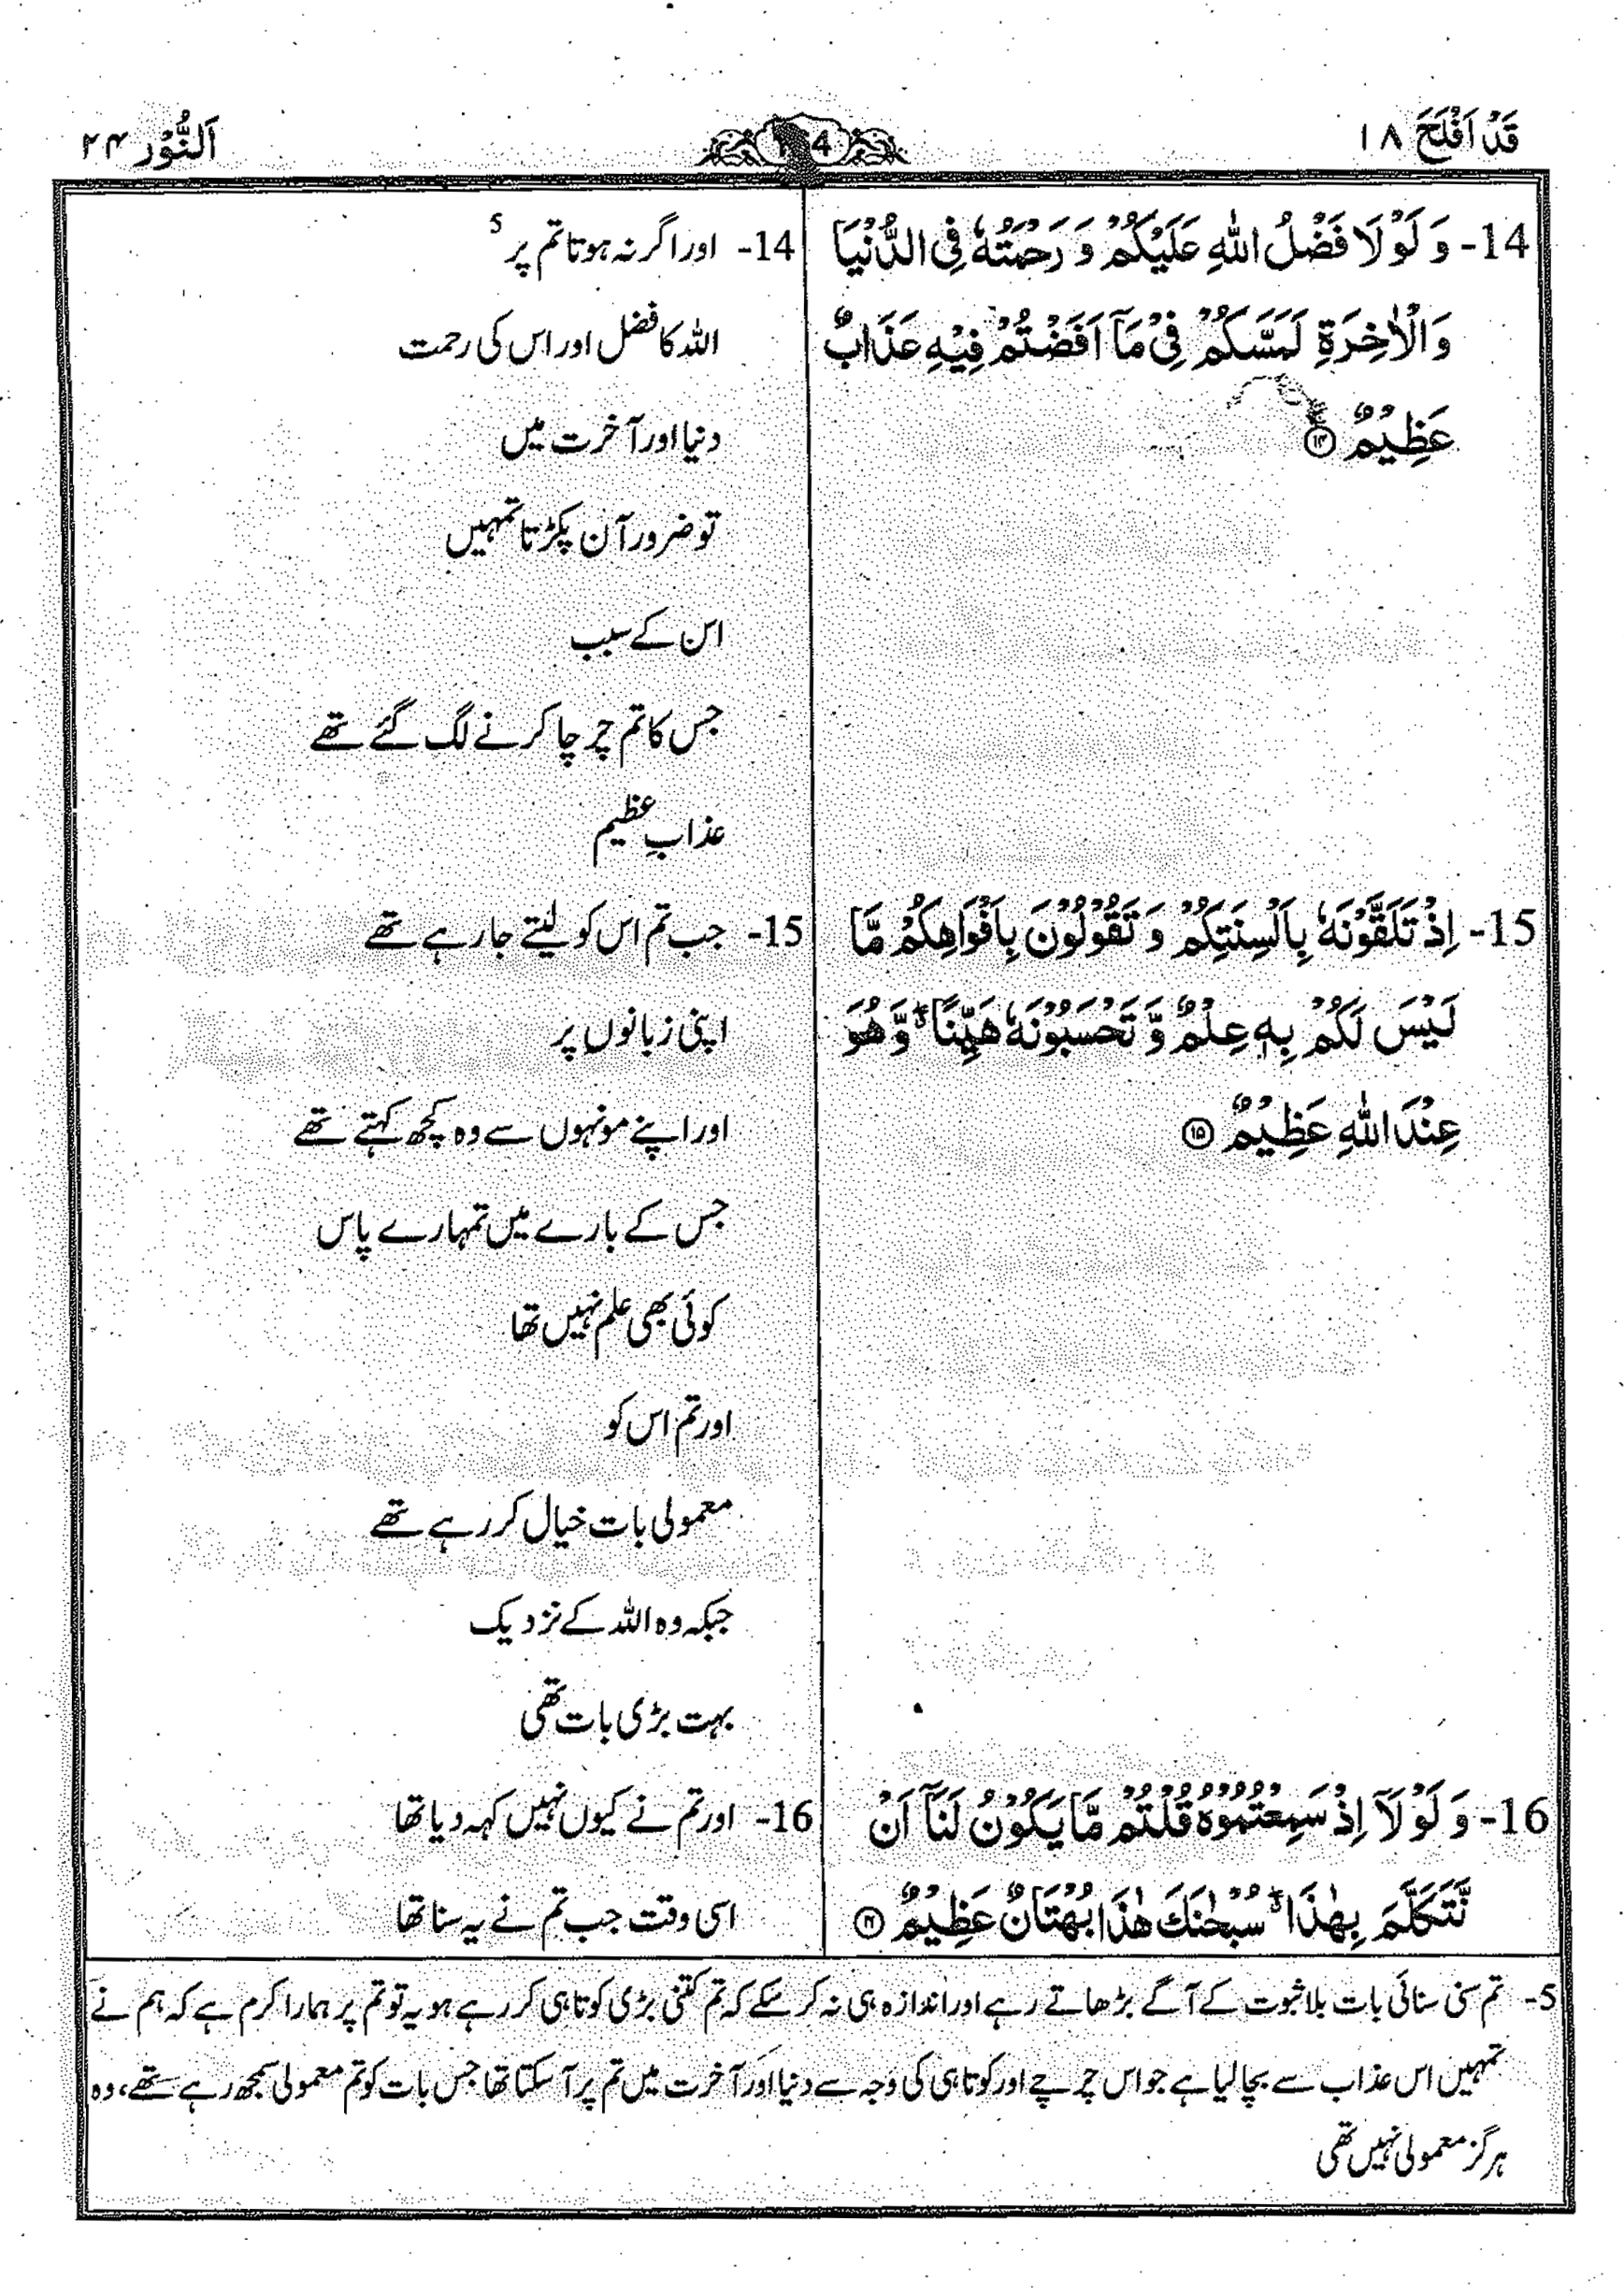 قَدْ اَفْلَحَ ۱۸
اَلنُّوْر ۲۴
14- وَ لَوْ لَا فَضْلُ اللّٰهِ عَلَيْكُمْ وَ رَحْمَتُهٗ فِی الدُّنْيَا
وَالْاٰخِرَةِ لَمَسَّكُمْ فِیْ مَاۤ اَفَضْتُمْ فِيْهِ عَذَابٌ
عَظِيْمٌ ۚۖ ۝۱۴
15- اِذْ تَلَقَّوْنَهٗ بِاَلْسِنَتِكُمْ وَ تَقُوْلُوْنَ بِاَفْوَاهِكُمْ مَّا
لَيْسَ لَكُمْ بِهٖ عِلْمٌ وَّ تَحْسَبُوْنَهٗ هَيِّنًا ۖۗ وَّ هُوَ
عِنْدَ اللّٰهِ عَظِيْمٌ ۝۱۵
16- وَ لَوْ لَاۤ اِذْ سَمِعْتُمُوْهُ قُلْتُمْ مَّا يَكُوْنُ لَنَاۤ اَنْ
نَّتَكَلَّمَ بِهٰذَا ۖۗ سُبْحٰنَكَ هٰذَا بُهْتَانٌ عَظِيْمٌ ۝۱۶
14- اور اگر نہ ہوتا تم پر 5
اللہ کا فضل اور اس کی رحمت
دنیا اور آخرت میں
تو ضرور آن پکڑتا تمہیں
اس کے سبب
جس کا تم چرچا کرنے لگ گئے تھے
عذابِ عظیم
15- جب تم اس کو لیتے جا رہے تھے
اپنی زبانوں پر
اور اپنے مونہوں سے وہ کچھ کہتے تھے
جس کے بارے میں تمہارے پاس
کوئی بھی علم نہیں تھا
اور تم اس کو
معمولی بات خیال کر رہے تھے
جبکہ وہ اللہ کے نزدیک
بہت بڑی بات تھی
16- اور تم نے کیوں نہیں کہہ دیا تھا
اسی وقت جب تم نے یہ سنا تھا
5- تم سنی سنائی بات بلا ثبوت کے آگے بڑھاتے رہے اور اندازہ ہی نہ کر سکے کہ تم کتنی بڑی کوتاہی کر رہے ہو یہ تو تم پر ہمارا کرم ہے کہ ہم نے
تمہیں اس عذاب سے بچا لیا ہے جو اس چرچے اور کوتاہی کی وجہ سے دنیا اور آخرت میں تم پر آ سکتا تھا جس بات کو تم معمولی سمجھ رہے تھے، وہ
ہرگز معمولی نہیں تھی